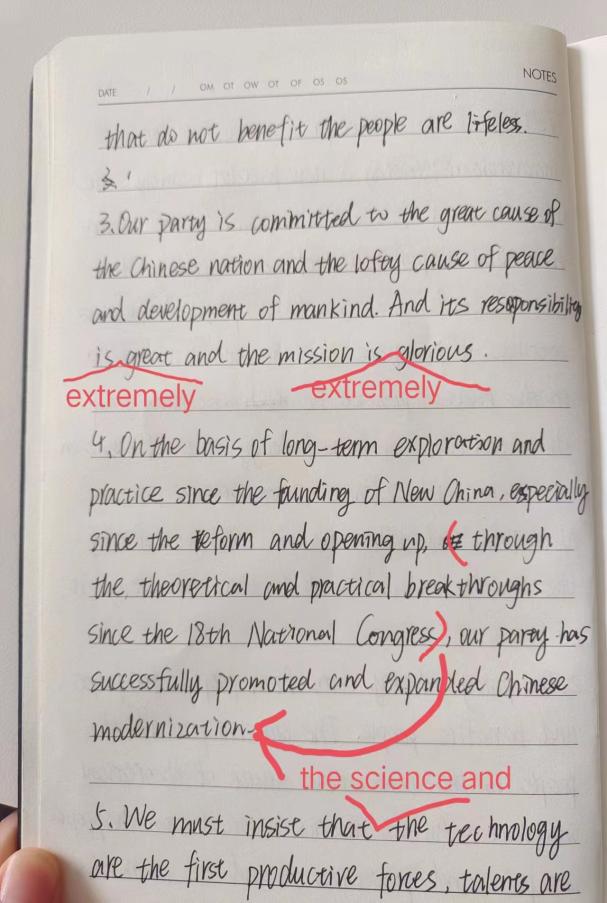 NOTES
DATE / / OM OT OW OT OF OS OS
that do not benefit the people are lifeless.
3.Our party is committed to the great cause of
the Chinese nation and the lofty cause of peace
and development of mankind. And its resoponsibility
is great and the mission is glorious.
extremely extremely
4. On the basis of long-term exploration and
practice since the funding of New China, especially
since the reform and opening up, ( through
the theoretical and practical breakthroughs
since the 18th National Congress), our party has
successfully promoted and expanded Chinese
modernization.
the science and
5. We must insist that the technology
are the first productive forces, talents are